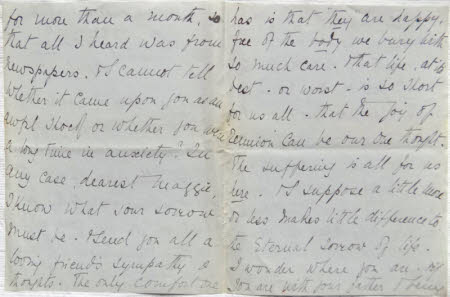 for more than a month, so
that all I heard was from
newspapers. I cannot tell
whether it came upon you as an
awful shock or whether you were
a long time in anxiety. In
any case, dearest Maggie,
I know what your sorrow
must be. I send you all a
loving friend's sympathy &
thoughts. The only comfort one
has is that they are happy.
free of the body we bury with
so much care. That life, at its
best - or worst - is so short
for us all - that the joy of
Reunion can be our one thought.
The suffering is all for us
here. I suppose a little more
or less makes little difference to
the Eternal Sorrow of life.
I wonder where you are - if
you are with your father &